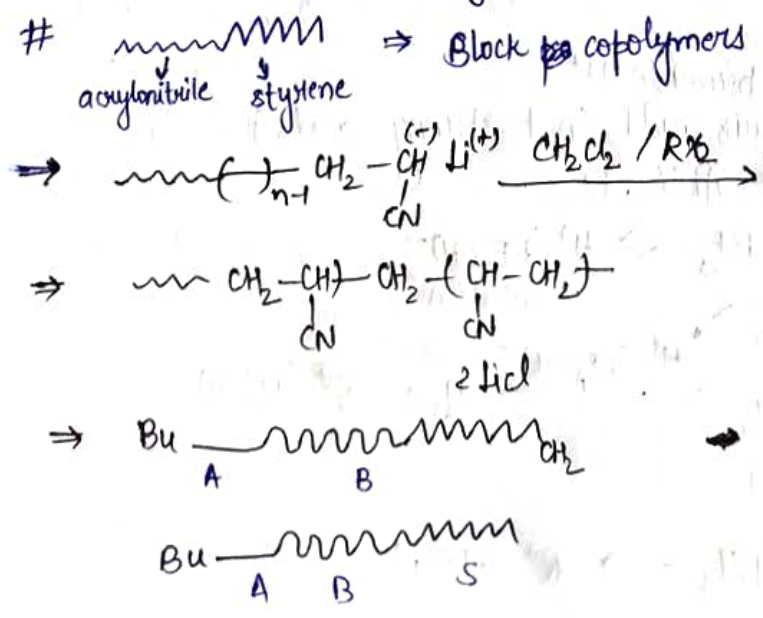 # ⇒ Block copolymers
acrylonitrile styrene
⇒ ( )n-1 CH2 - CH(-) Li(+) CH2Cl2 / RX2 →
CN
⇒ CH2 - CH ) CH2 ( CH - CH2 )
CN CN
2 LiCl
⇒ Bu CH2
A B
Bu
A B S